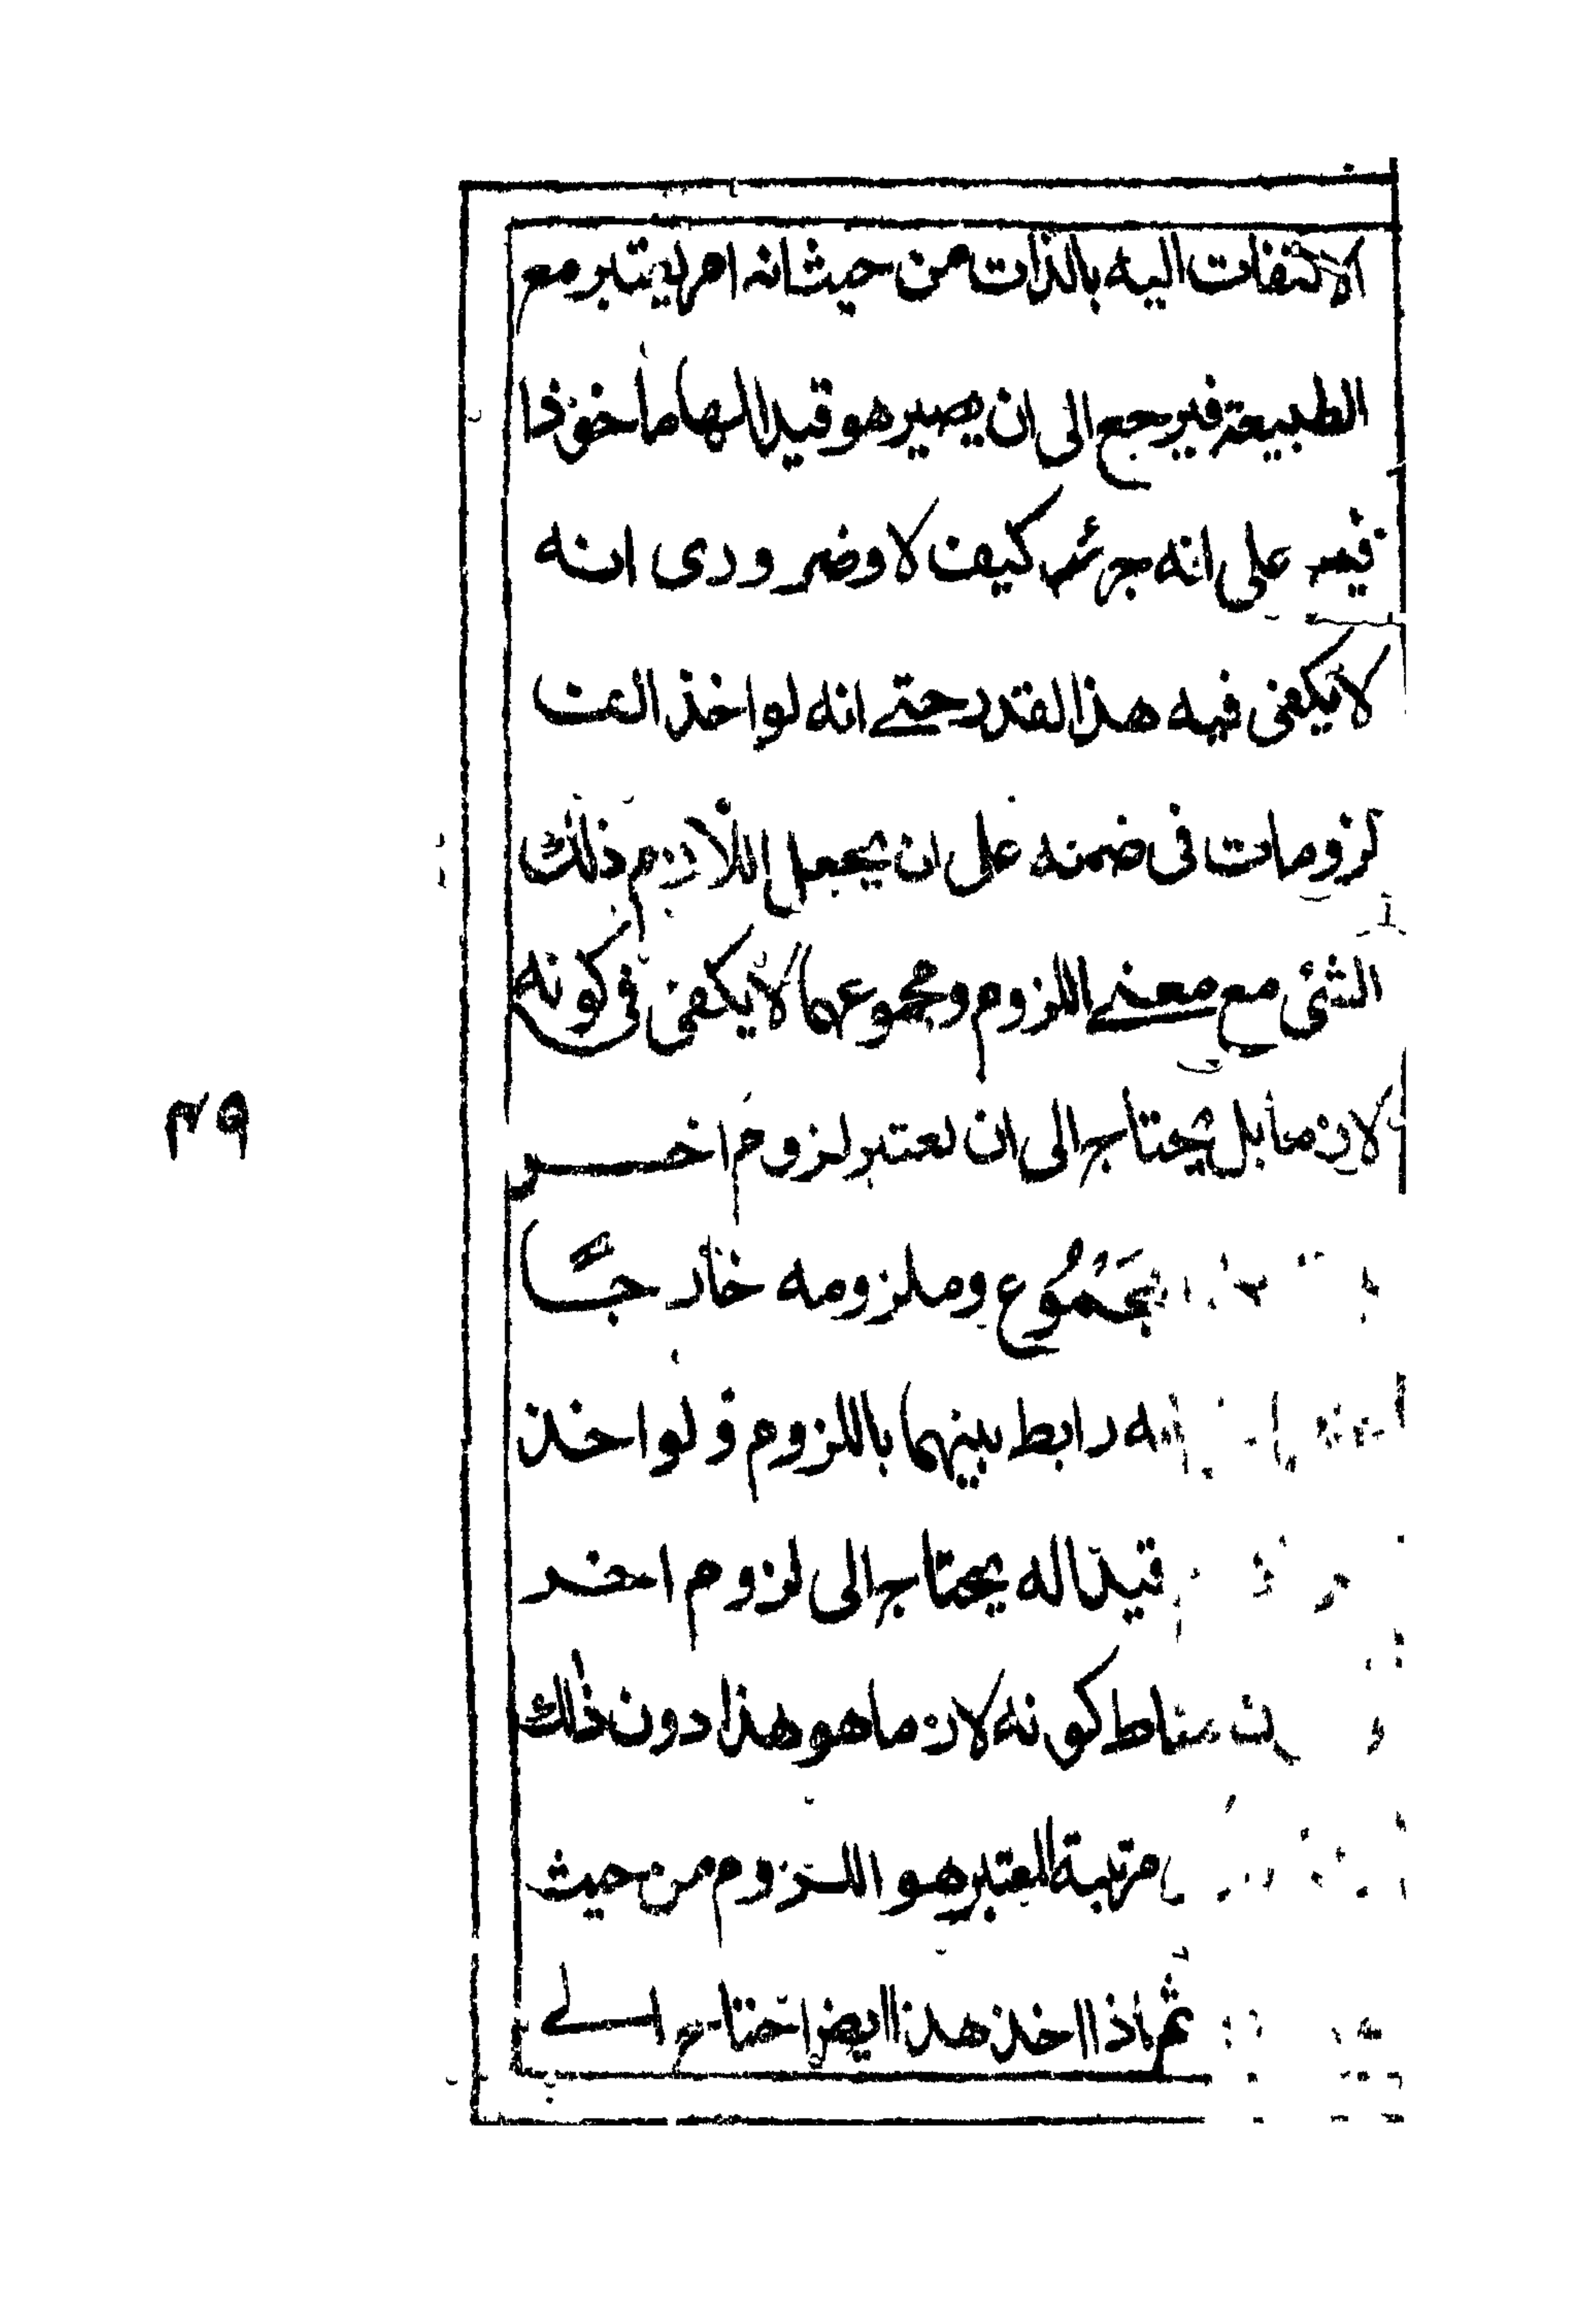 الالتفات اليه بالذات من حيث انه امر يعتبر مع
الطبيعة فيرجع الى ان يصير هو قيدا لها ماخوذا
فيه على انه جزئه كيف لا وضرورى انه
لا يكفى فيه هذا القدر حتى انه لو اخذ الف
لزومات فى ضمنه على ان يجعل اللازم ذلك
الشئ مع معنى اللزوم ومجموعهما لا يكفى فى كونه
لازما بل يحتاج الى ان يعتبر لزوم اخر
مجموع وملزومه خارجا
رابط بينهما باللزوم ولو اخذ
قيدا له يحتاج الى لزوم اخر
مناط كونه لازما هو هذا دون ذلك
مرتبة المعتبر هو اللزوم من حيث
ثم اذا اخذ هذا ايضا احتاج الى
٤٩